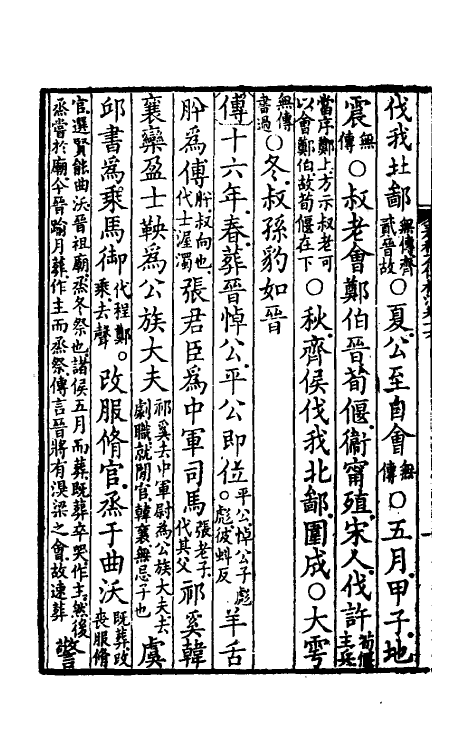 伐我北鄙無傳齊貳晉故○夏公至自會無傳○五月甲子地
震無傳○叔老會鄭伯晉荀偃衛甯殖宋人伐許荀偃主兵
當序鄭上方示叔老可以會鄭伯故荀偃在下○秋齊侯伐我北鄙圍成○大雩
無傳書過○冬叔孫豹如晉
傳十六年春葬晉悼公平公即位平公悼公子彪○彪彼蚪反羊舌
肸爲傅肸叔向也代士渥濁張君臣爲中軍司馬張老子代其父祁奚韓
襄欒盈士鞅爲公族大夫祁奚去中軍尉爲公族大夫去劇職就閒官韓襄無忌子也虞
邱書爲乘馬御代程鄭○乘去聲改服脩官烝于曲沃既葬改喪服脩
官選賢能曲沃晉祖廟烝冬祭也諸侯五月而葬既葬卒哭作主然後烝嘗於廟今晉踰月葬作主而烝祭傳言晉將有湨梁之會故速葬警